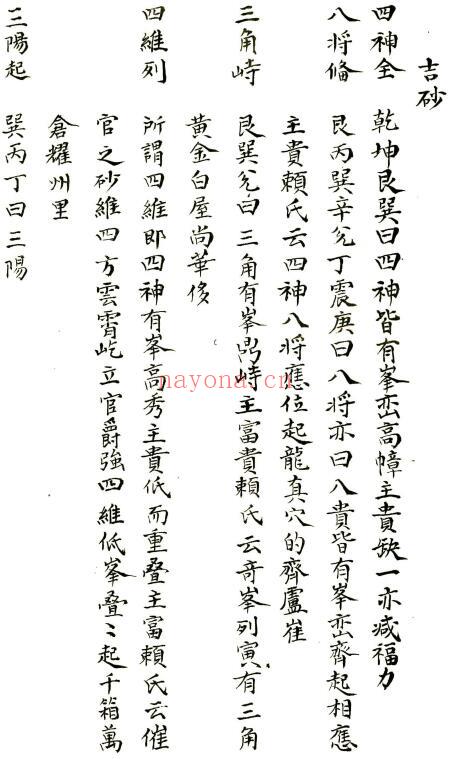 吉砂
四神全 乾坤艮巽曰四神皆有峯巒高幛主貴缺一亦减福力
八将俻 艮丙巽辛兊丁震庚曰八将亦曰八貴皆有峯巒齊起相應
主貴賴氏云四神八将應位起龍真穴的齊盧崔
三角峙 艮巽兊曰三角有峯鼎峙主富貴賴氏云竒峯列寅有三角
黄金白屋尚華侈
四維列 所謂四維即四神有峯高秀主貴低而重叠主富賴氏云催
官之砂維四方雲霄屹立官爵強四維低峯叠〻起千箱萬
倉耀州里
三陽起 巽丙丁曰三陽
nayona.cn